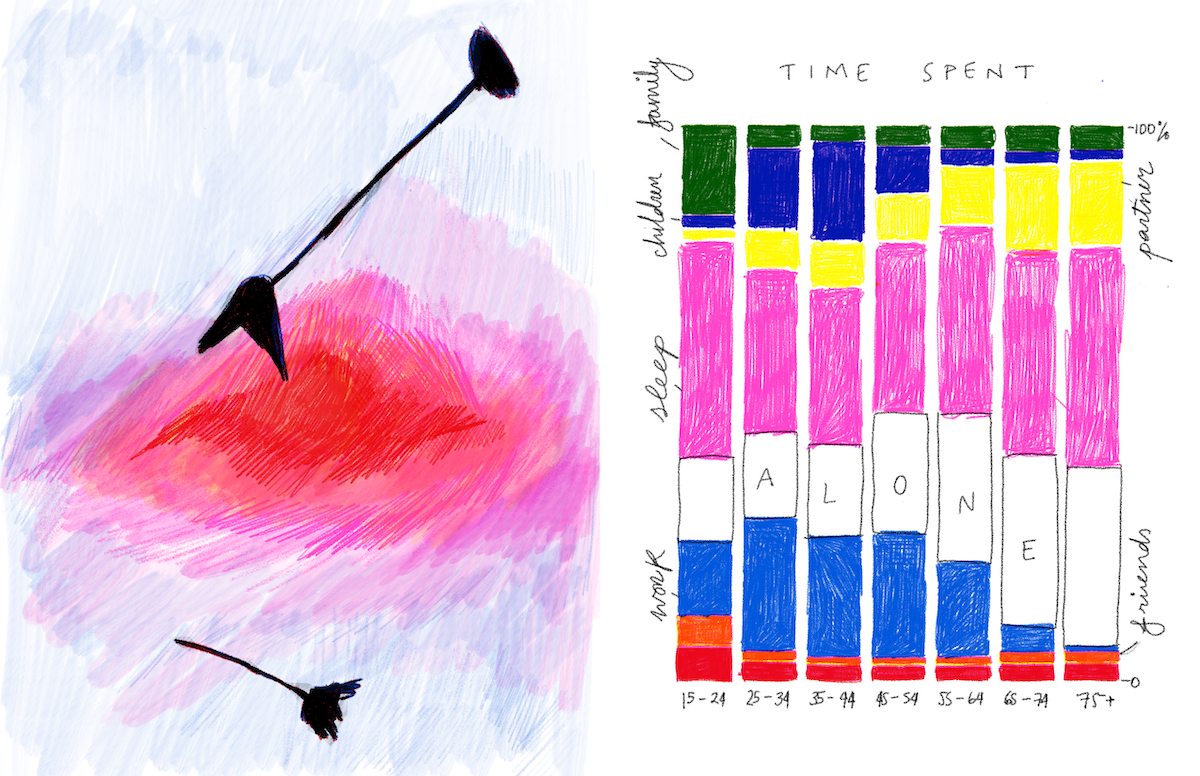 TIME SPENT
family
children,
sleep
work
100%
partner
friends
0
A
L
O
N
E
15-24
25-34
35-44
45-54
55-64
65-74
75+